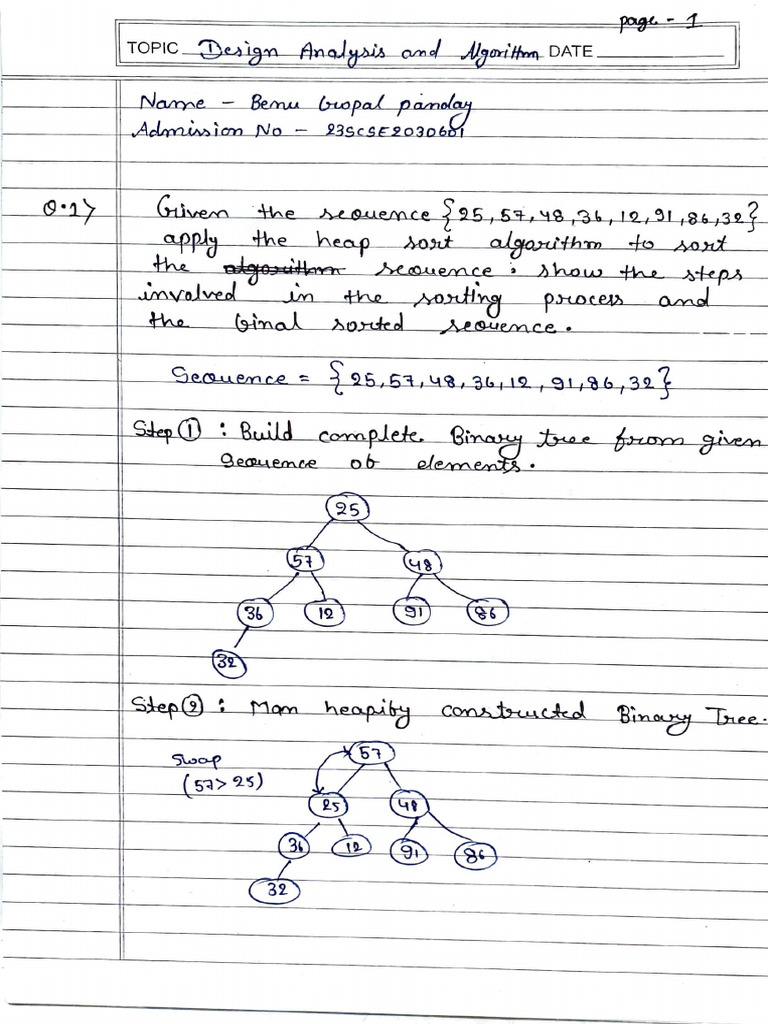 page - 1
TOPIC Design Analysis and Algorithm DATE
Name - Benu Gopal panday
Admission No - 23SCSE2030601
Q.1> Given the sequence {25, 57, 48, 36, 12, 91, 86, 32}
apply the heap sort algorithm to sort
the algorithm sequence. show the steps
involved in the sorting process and
the final sorted sequence.
Sequence = {25, 57, 48, 36, 12, 91, 86, 32}
Step ① : Build complete Binary tree from given
sequence of elements.
25
57 48
36 12 91 86
32
Step ② : Max heapify constructed Binary Tree.
swap 57
(57 > 25)
25 48
36 12 91 86
32